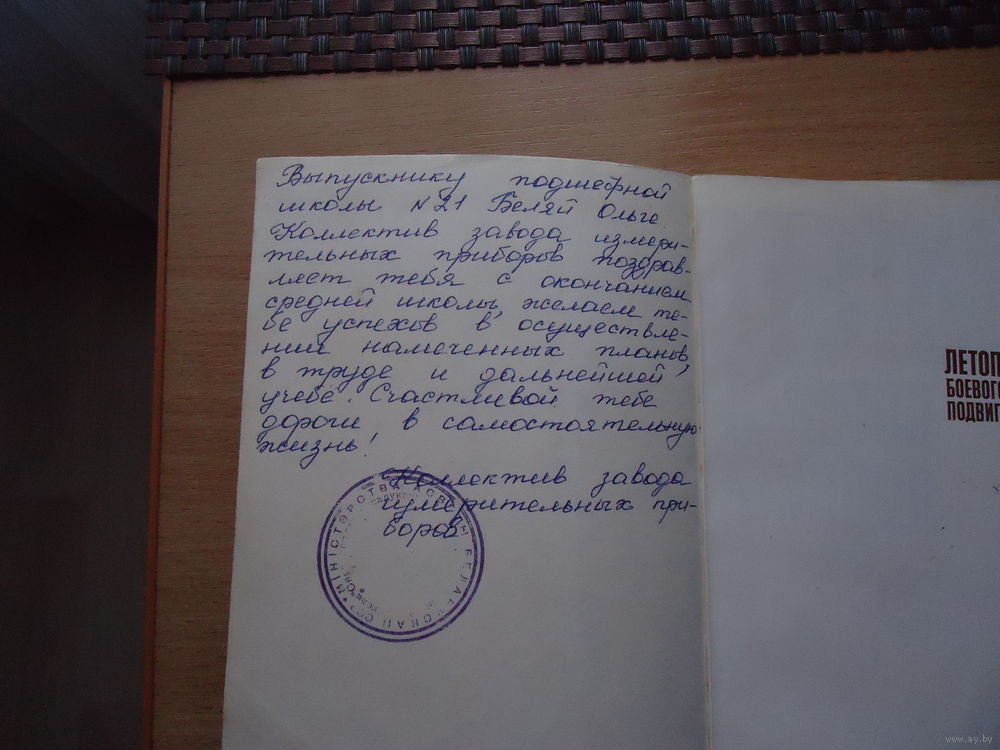 Выпускнику подшефной
школы №21 Беляй Ольге.
Коллектив завода измери-
тельных приборов поздрав-
ляет тебя с окончанием
средней школы, желаем те-
бе успехов в осуществле-
нии намеченных планов,
в труде и дальнейшей
учёбе. Счастливой тебе
дороги в самостоятельную
жизнь!
Коллектив завода
измерительных при-
боров.
МІНІСТЭРСТВА АСВЕТЫ БЕЛАРУСКАЙ ССР
ЛЕТОП
БОЕВОГО
ПОДВИГ
www.ay.by